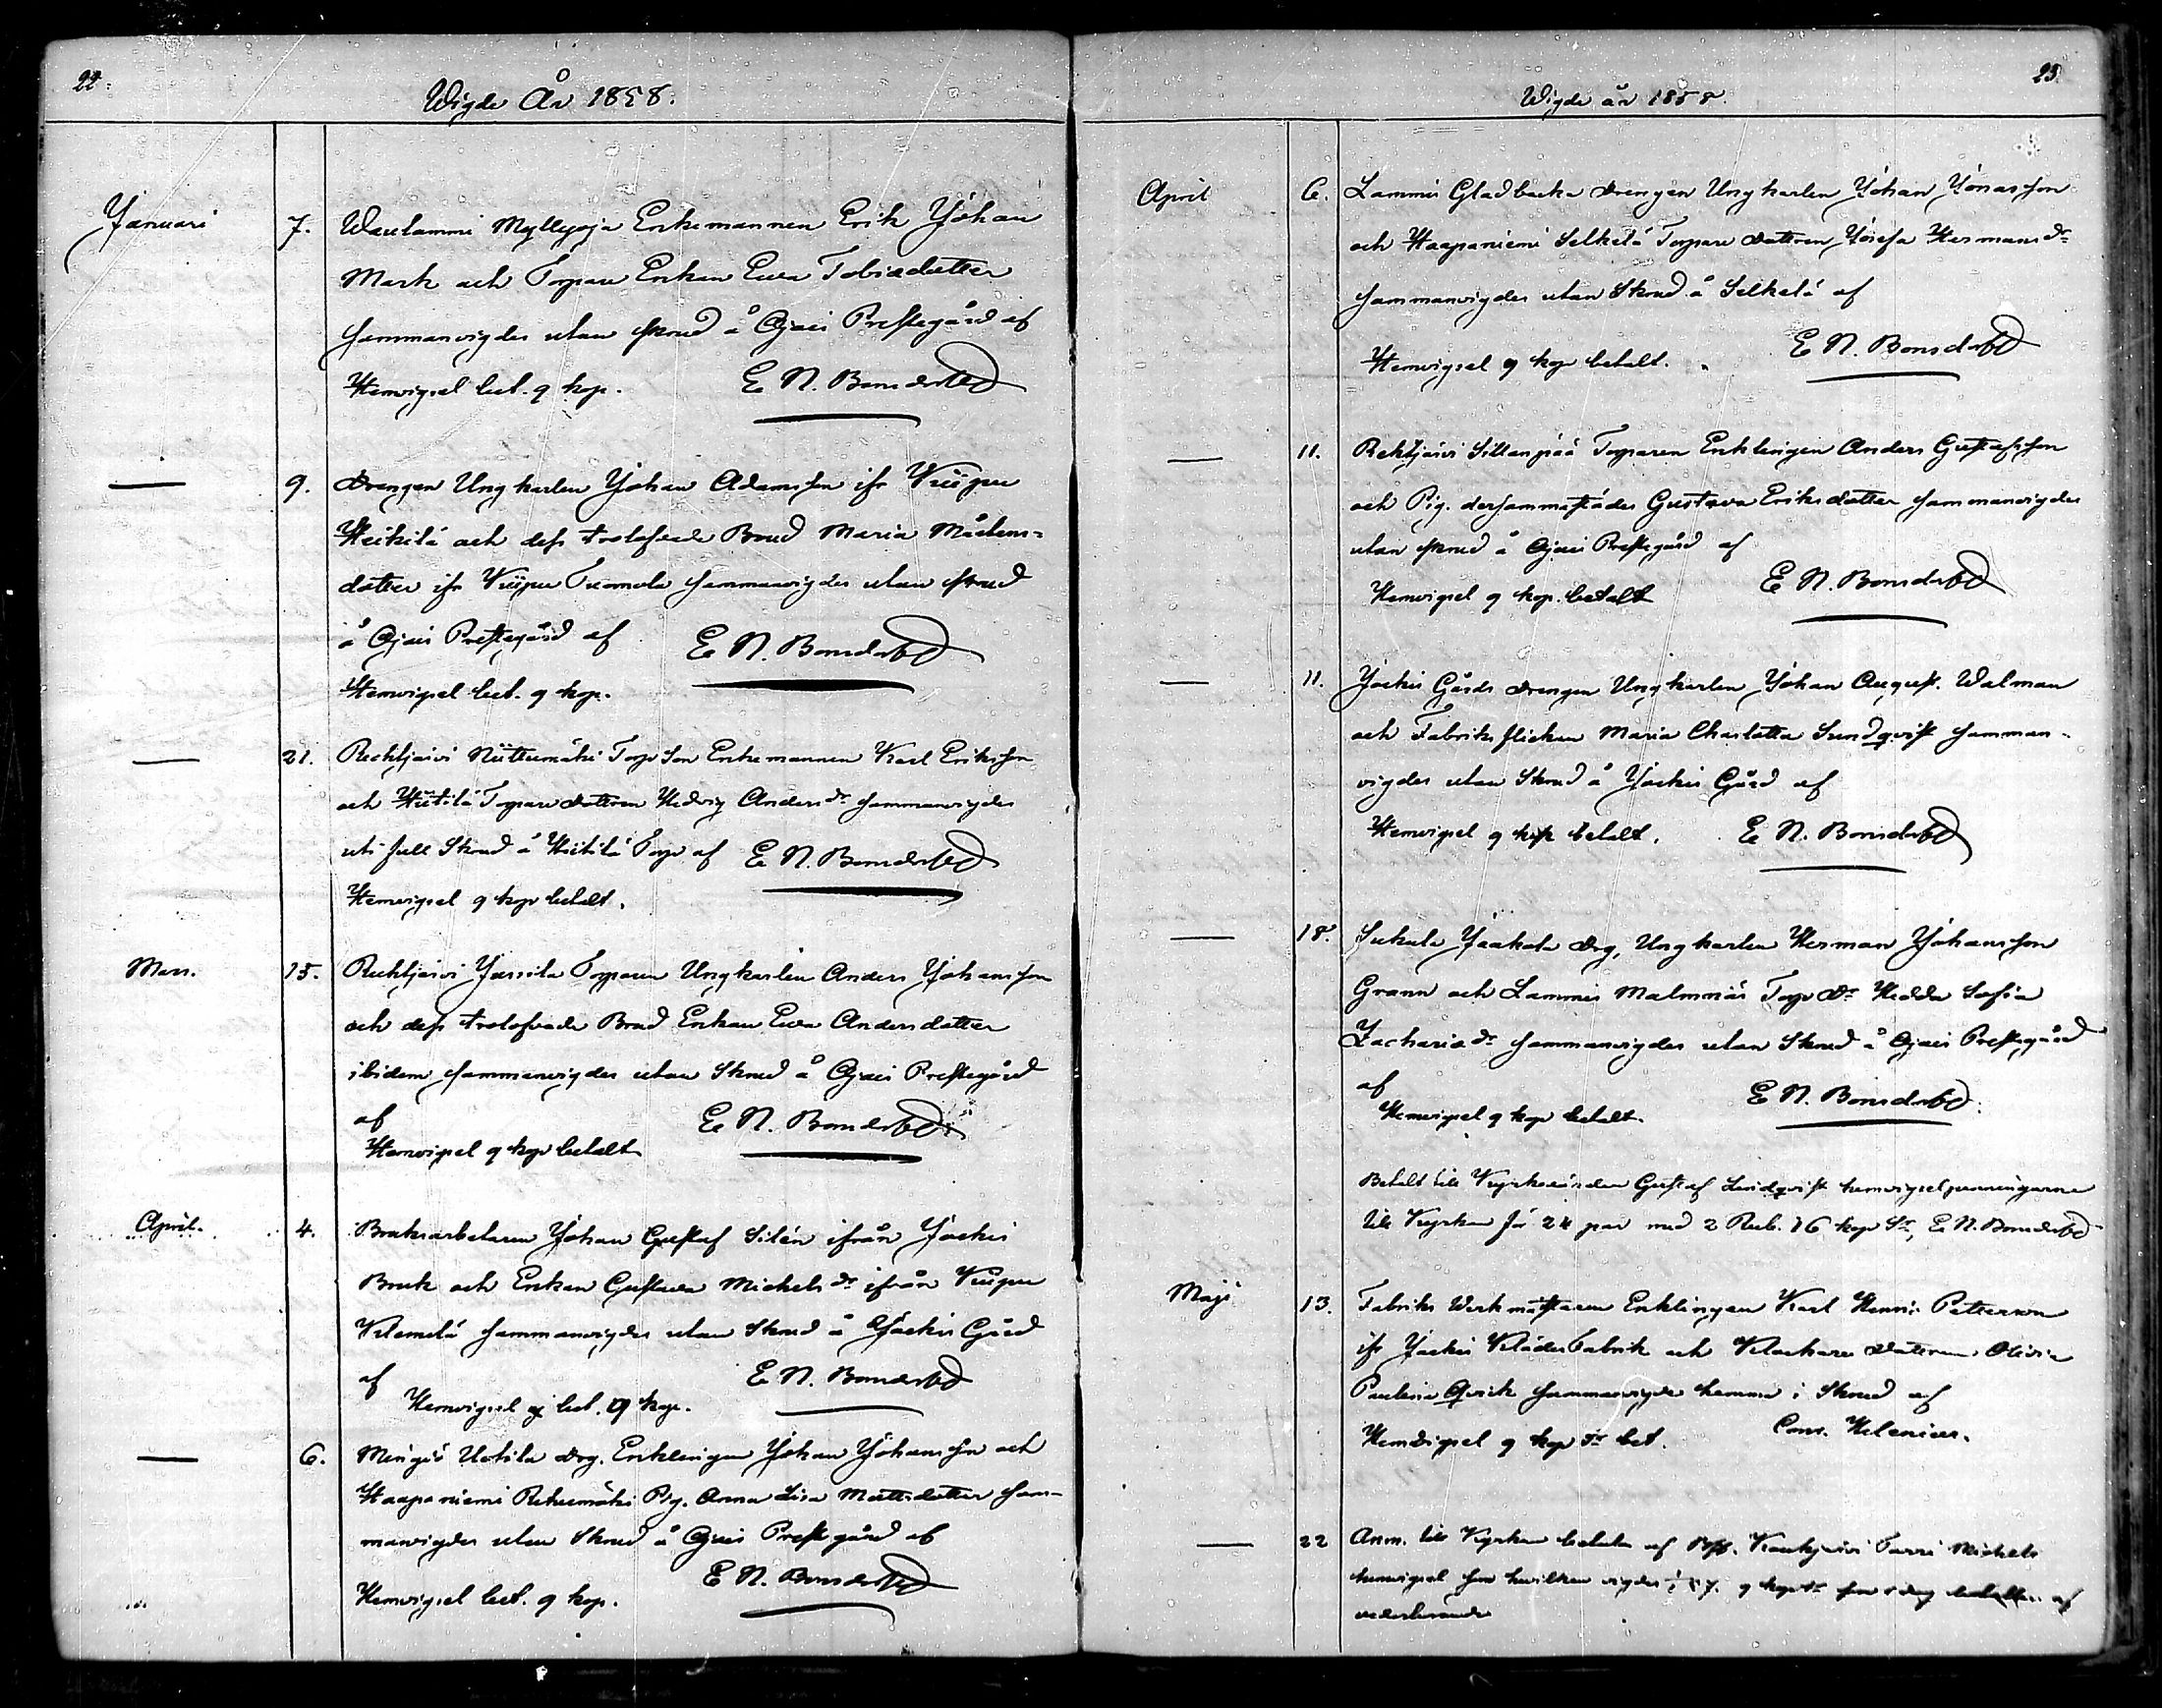 22.
Wigde År 1858.
Januari 7. Waulammi Myllyoja Enkemannen Erik Johan
Mark och Torpare Enkan Ewa Tobiædotter
sammanvigdes utan skrud å Ojais Prestegård af
Hemvigsel bet. 9 kop. E N. Bonsdorff
— 9. Drengen Ungkarlen Johan Adamsson ifr Wiipu
Heikilä och dess trolofvade Brud Maria Mårtens-
dotter ifr Wiipu Tuomola sammanvigdes utan skrud
å Ojais Prestegård af E N. Bonsdorff
Hemvigsel bet. 9 kop.
— 21. Rehtijärvi Niittumäki Torp Son Enkemannen Karl Eriksson
och Hiitilä Torpare Dottren Hedvig Andersdr sammanvigdes
uti full Skrud å Hiitilä Torp af E N. Bonsdorff
Hemvigsel 9 kop betalt.
Mars. 15. Rehtijärvi Jussila Torparen Ungkarlen Anders Johansson
och dess trolofvade Brud Enkan Ewa Andersdotter
ibidem sammanvigdes utan Skrud å Ojais Prestegård
af E N. Bonsdorff
Hemvigsel 9 kop betalt
April. 4. Bruksarbetaren Johan Gustaf Silén ifrån Jockis
Bruk och Enkan Gustava Michelsdr ifrån Wiipu
Klemelä sammanvigdes utan Skrud å Jockis Gård
af E N. Bonsdorff
Hemvigsel bet. 9 kop.
— 6. Mingiö Uotila Drg. Enklingen Johan Johansson och
Haapaniemi Pig. Anna Lisa Mattsdotter sam-
manvigdes utan Skrud å Ojais Prestgård af
E N. Bonsdorff
Hemvigsel bet. 9 kop.
23.
Wigde år 1858.
April 6. Lammi Gladbacka Drengen Ungkarlen Johan Jonasson
och Haapaniemi Selkelä Torpare Dottren Josefa Hermansdr
sammanvigdes utan Skrud å Selkelä af
Hemvigsel 9 kop betalt. E N. Bonsdorff
— 11. Rehtijärvi Sillanpää Torparen Enklingen Anders Gustafsson
och Pig. dersammastädes Gustava Eriksdotter sammanvigdes
utan skrud å Ojais Prestegård af
Hemvigsel 9 kop. betalt E N. Bonsdorff
— 11. Jockis Gårds Drengen Ungkarlen Johan August. Walman
och Fabriksflickan Maria Charlotta Sundqvist samman-
vigdes utan Skrud å Jockis Gård af
Hemvigsel 9 kop betalt. E N. Bonsdorff
— 18. Sukula Jaakola Drg, Ungkarlen Herman Johansson
Grann och Lammi Malmnäs Torp Dr Hedda Sofia
Zachariædr sammanvigdes utan Skrud å Ojais Prestegård
af E N. Bonsdorff.
Hemvigsel 9 kop betalt.
Betalt till Kyrkovärden Gustaf Lindqvist hemvigselpenningarna
till Kyrkan för 24 par med 2 Rub. 16 kop Sr, E N. Bonsdorff
Maji 13. Fabriks Werkmästaren Enklingen Karl Henric Petterson
ifr Jockis Klädesfabrik och Klockare Dottren Olivia
Paulina Qvick sammanvigde hemma i Skrud af
Hemvigsel 9 kop Sr bet. Conr. Helenius.
— 22 Anm. till Kyrkan betalt af Kaukjärvi Torri Michels
hemvigsel för hvilken vigdes 9 kop Sr
vederbörande